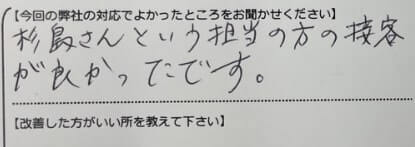 【今回の弊社の対応でよかったところをお聞かせください】
杉島さんという担当の方の接客
が良かったです。
【改善した方がいい所を教えて下さい】